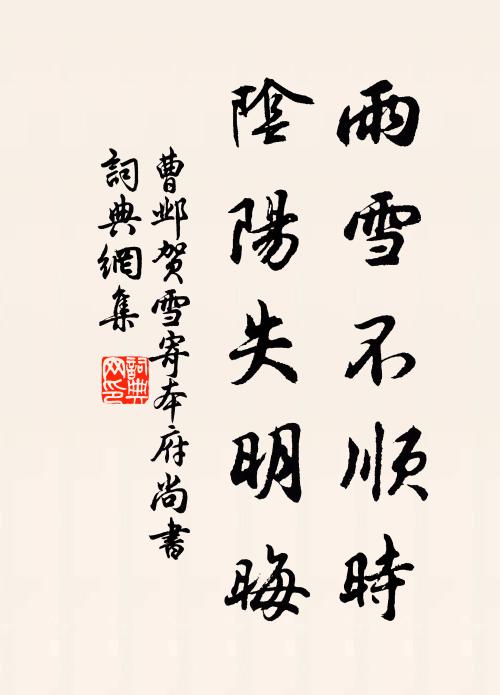 雨雪不順時
陰陽失明晦
曹邺贺雪寄本府尚書
詞典網集
詞典網印